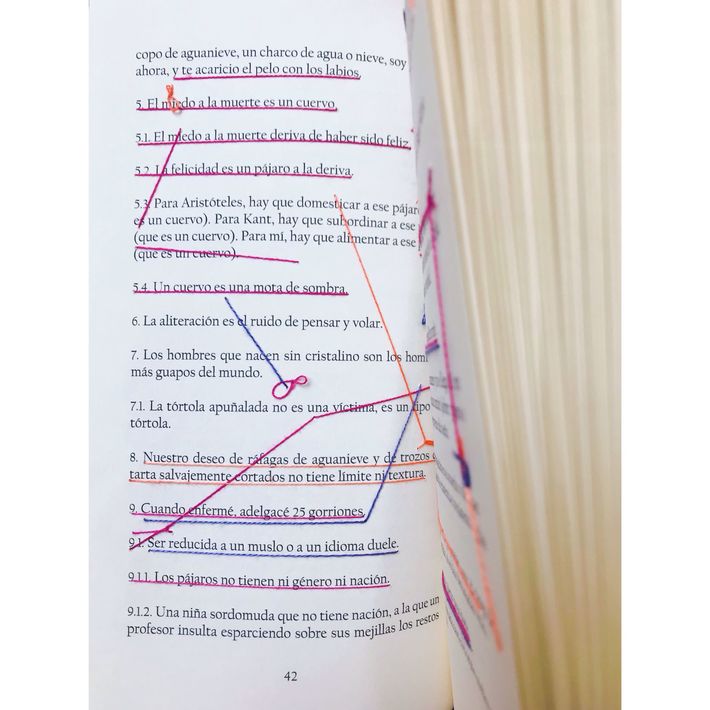 copo de aguanieve, un charco de agua o nieve, soy
ahora, y te acaricio el pelo con los labios.
5. El miedo a la muerte es un cuervo.
5.1. El miedo a la muerte deriva de haber sido feliz.
5.2. La felicidad es un pájaro a la deriva.
5.3. Para Aristóteles, hay que domesticar a ese
es un cuervo). Para Kant, hay que subordinar a ese
(que es un cuervo). Para mí, hay que alimentar a ese
(que es un cuervo).
5.4. Un cuervo es una mota de sombra.
6. La aliteración es el ruido de pensar y volar.
7. Los hombres que nacen sin cristalino son los
más guapos del mundo.
7.1. La tórtola apuñalada no es una víctima, es un tipo
tórtola.
8. Nuestro deseo de ráfagas de aguanieve y de trozos
tarta salvajemente cortados no tiene límite ni textura.
9. Cuando enfermé, adelgacé 25 gorriones.
9.1. Ser reducida a un muslo o a un idioma duele.
9.1.1. Los pájaros no tienen ni género ni nación.
9.1.2. Una niña sordomuda que no tiene nación, a la que un
profesor insulta esparciendo sobre sus mejillas los restos
42